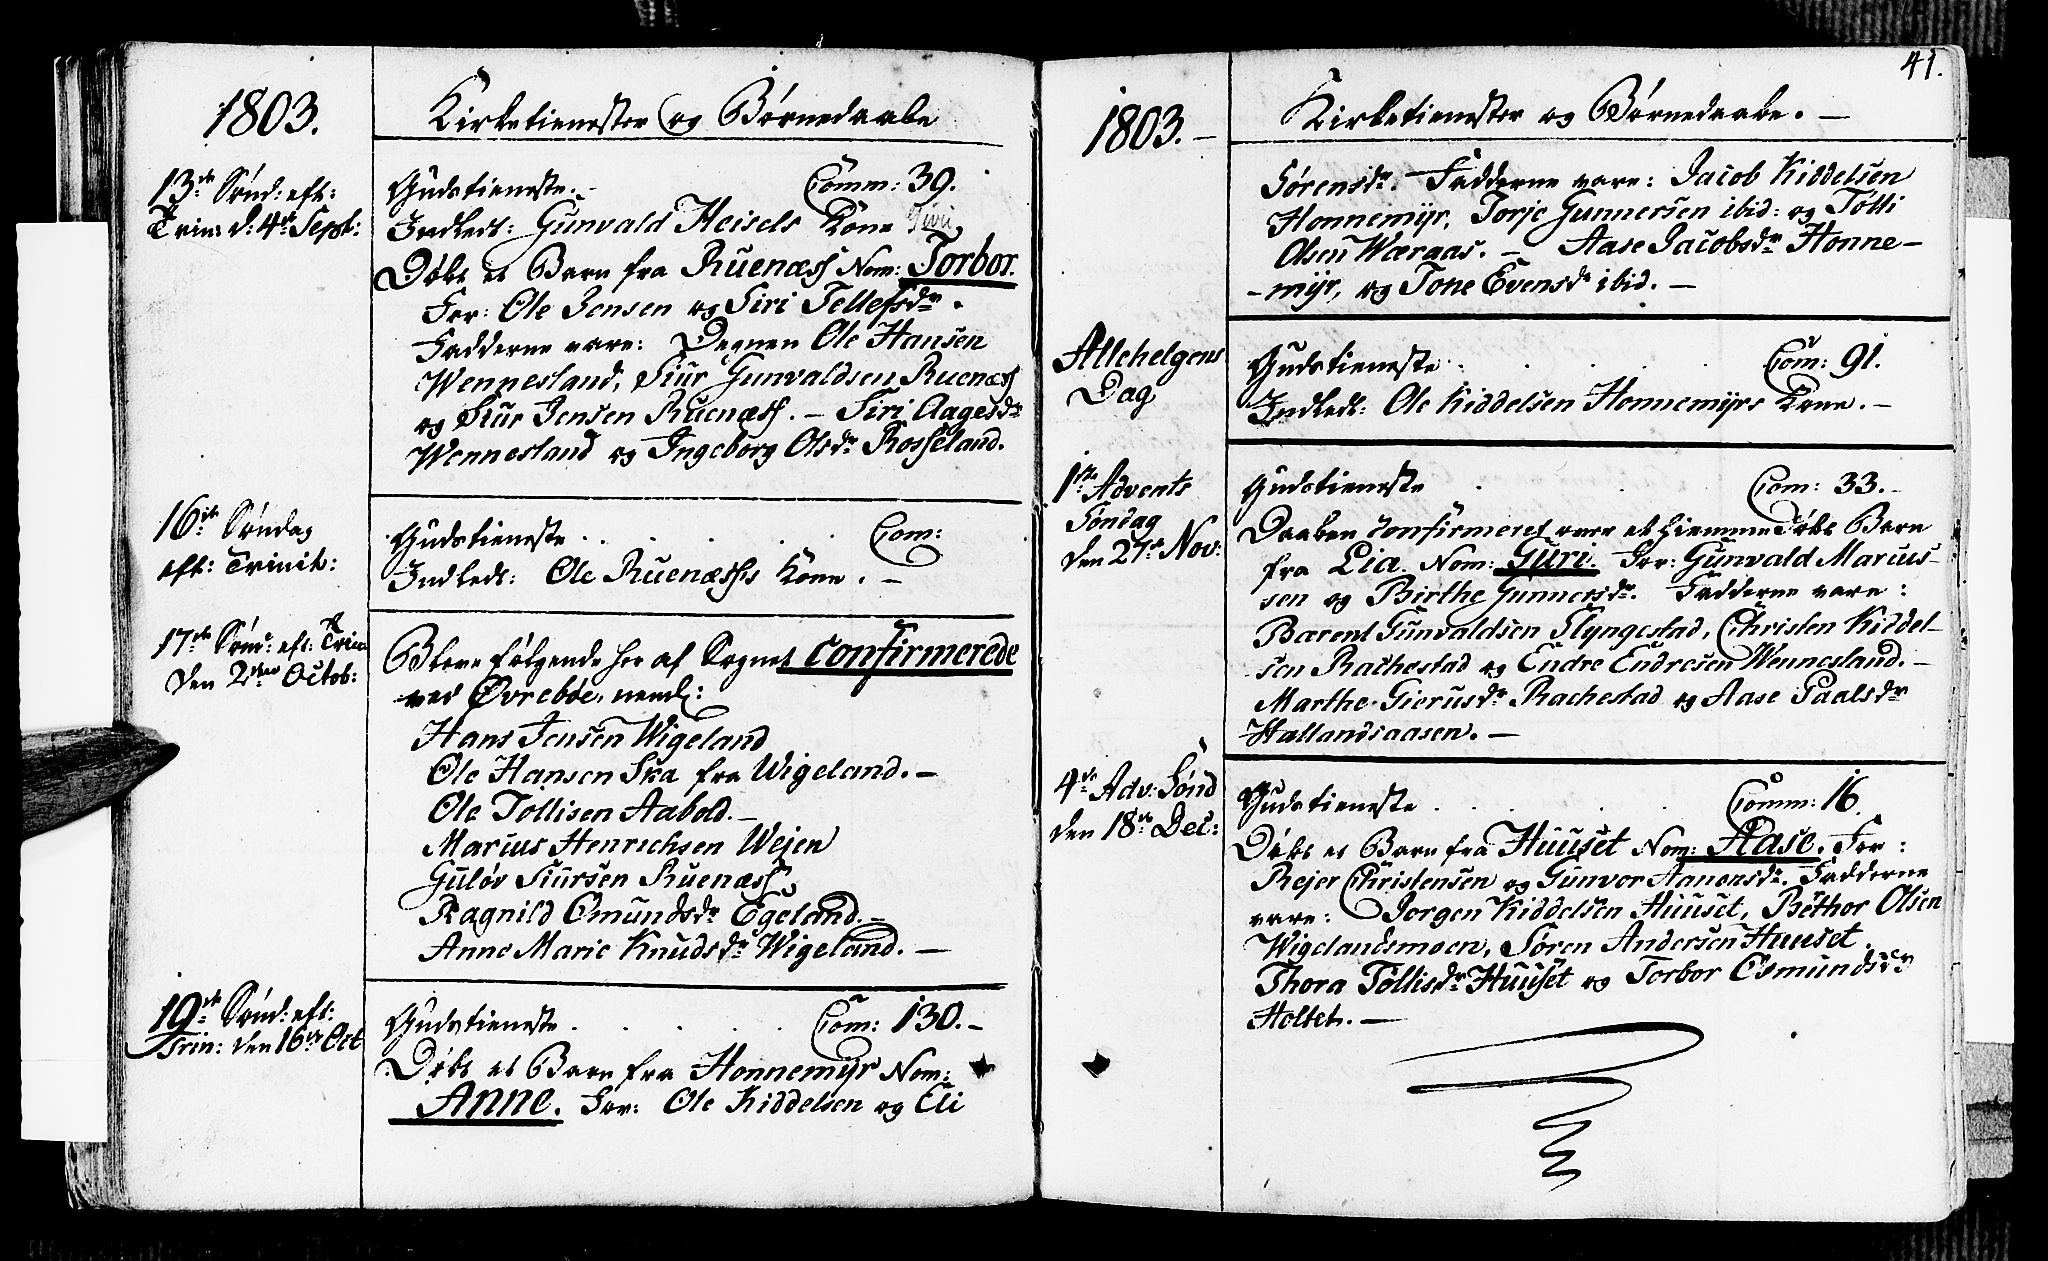 1803.
Kirketienester og Børnedaabe
13de Sønd: eft:
Trin: d: 4de Sept:
Gudstieneste. - Comm: 39.
Indledt: Gunvald Heisels Kone Giuri
Døbt et Barn fra Ruenæss Nom: Torbor.
For: Ole Jensen og Siri Tellefsdr.
Fadderne vare: Degnen Ole Hansen
Wennesland, Siur Gunvaldsen Ruenæss
og Siur Jensen Ruenæss. - Siri Aagesdr
Wennesland og Ingeborg Olsdr Rosseland.
16de Søndag
eft: Trinit:
Gudstieneste . . . . . Com:
Indledt: Ole Ruenæss's Kone. -
17de Sønd: eft: Trin
den 2den Octob:
Bleve følgende her af Sognet confirmerede
ved Øvrebøe, neml:
Hans Jensen Wigeland
Ole Hansen Ska fra Wigeland. -
Ole Tollisen Aabold. -
Marius Henrichsen Wejen
Guløv Siursen Ruenæss
Ragnild Omundsdr Egeland. -
Anne Marie Knudsdr Wigeland. -
19de Sønd: eft:
Trin: den 16de Oct
Gudstieneste . . . . . Com: 130. -
Døbt et Barn fra Honnemyr Nom:
Anne. For: Ole Kiddelsen og Eli
41.
1803. -
Kirketienester og Børnedaabe. -
Sørensdr. Fadderne vare: Jacob Kiddelsen
Honnemyr, Torje Gunnersen ibid: og Tolli
Olsen Wæraas. - Aase Jacobsdr Honne-
-myr, og Tone Evensdr ibid. -
Allehelgens
Dag
Gudstieneste . . . . Com: 91.
Indledt: Ole Kiddelsen Honnemyrs Kone. -
1ste Advents
Søndag
den 27de Nov:
Gudstieneste . . Com: 33. -
Daaben confirmeret over et hiemmedøbt Barn
fra Lia. Nom: Guri. For: Gunvald Marcus-
sen og Birthe Gunnersdr. Fadderne vare:
Bærent Gunvaldsen Flyngestad, Christen Kiddel-
sen Rachestad og Endre Endresen Wennesland. -
Marthe Gierusdr Rachestad og Aase Paalsdr
Hallandsaasen. -
4de Adv: Sønd
den 18de Dec:
Gudstieneste . . . . Comm: 16.
Døbt et Barn fra Huuset Nom: Aase. For:
Rejer Christensen og Gunvor Aanensdr. Fadderne
vare: Jorgen Kiddelsen Huuset, Bethor Olsen
Wigelandsmoen, Søren Andersen Huuset.
Thora Tollisdr Huuset og Torbor Osmundsdr
Holtet. -